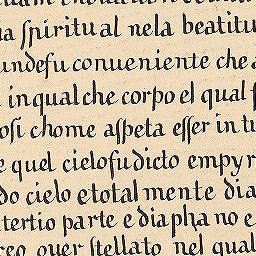 ia ſpiritual nela beatitu
undefu conueniente che a
in qual che corpo el qual
oſi chome aſpeta eſſer in tu
e quel cielo fu dicto empyr
do cielo e total mente dia
tertio parte e diapha no e
reo ouer ſtellato nel qual